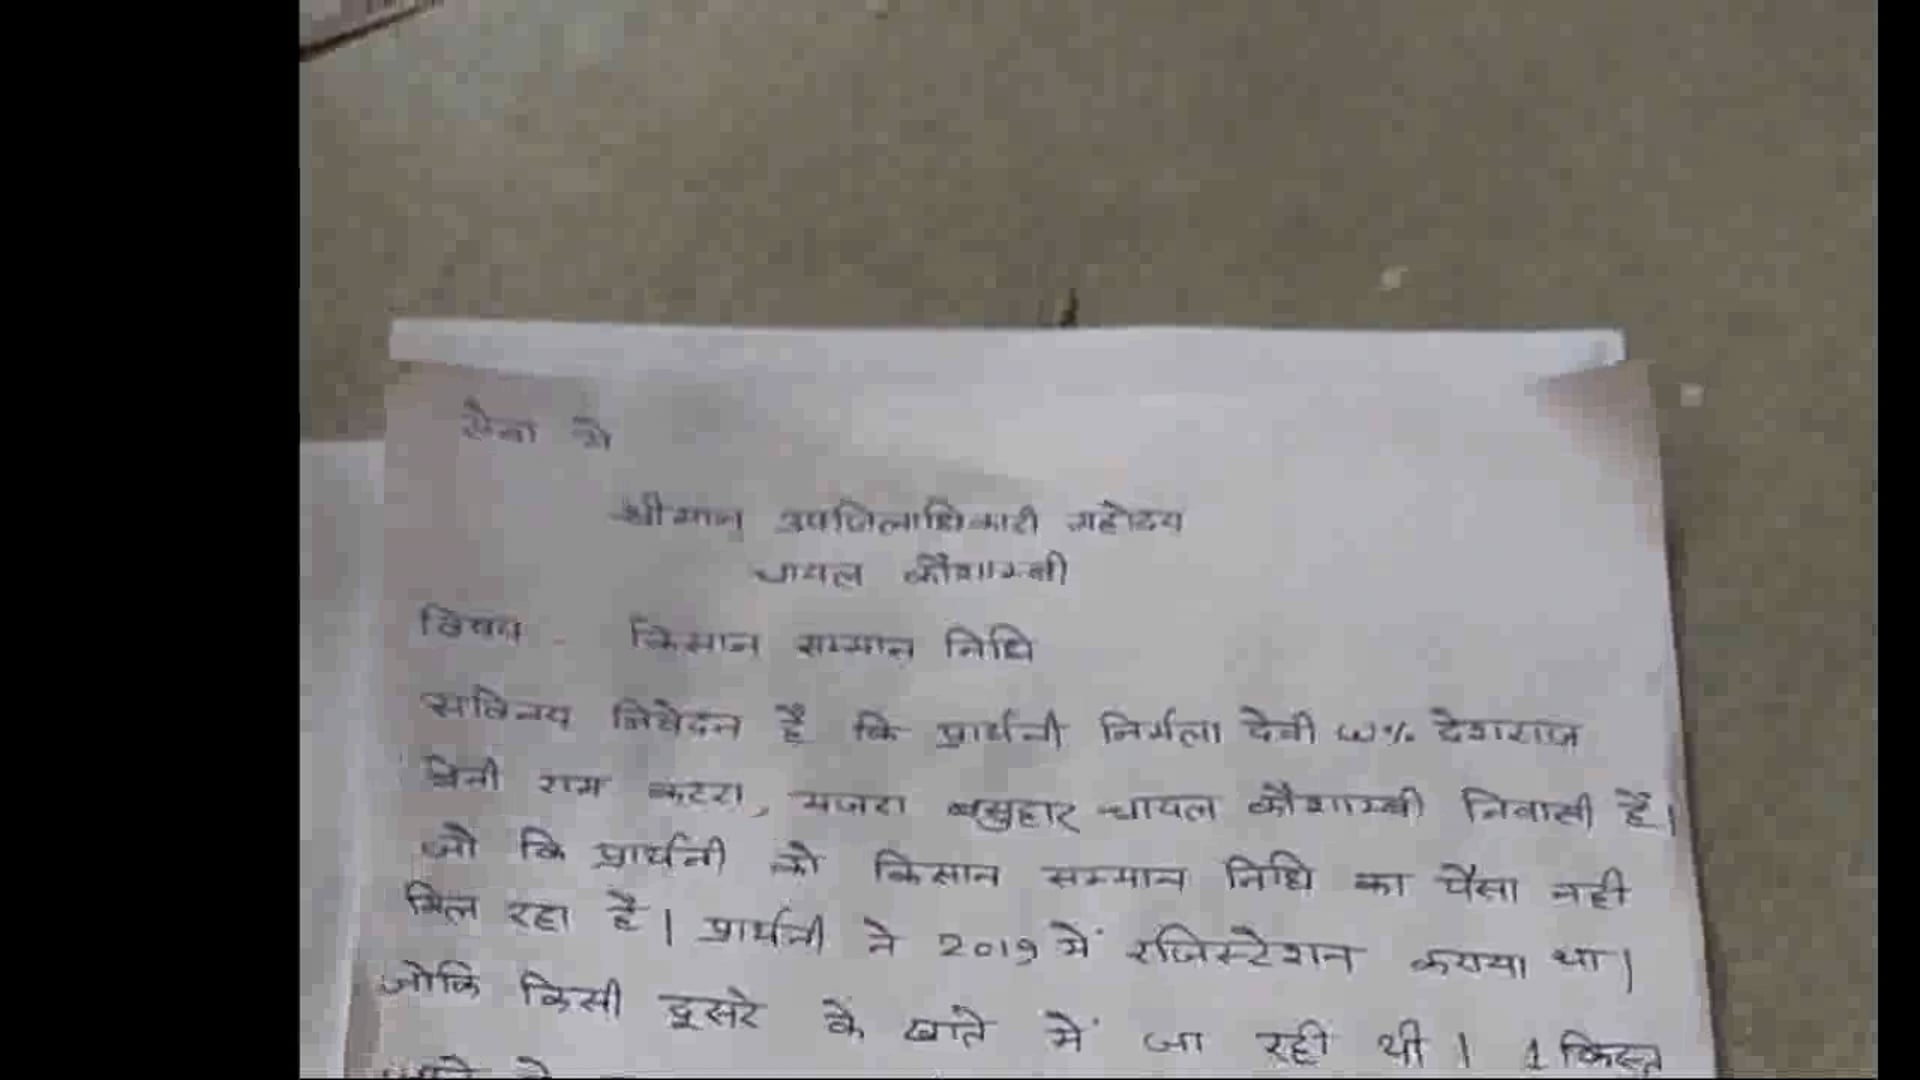 सेवा में
श्रीमान् उपजिलाधिकारी महोदय
चायल कौशाम्बी
विषय - किसान सम्मान निधि
सविनय निवेदन है कि प्रार्थनी निर्मला देवी w% देशराज
बेनी राम कटरा, मजरा बसुहार चायल कौशाम्बी निवासी हैं।
जो कि प्रार्थनी को किसान सम्मान निधि का पैसा नही
मिल रहा है। प्रार्थनी ने 2019 में रजिस्टेशन कराया था।
जोकि किसी दूसरे के खाते में जा रही थी। 1 किस्त